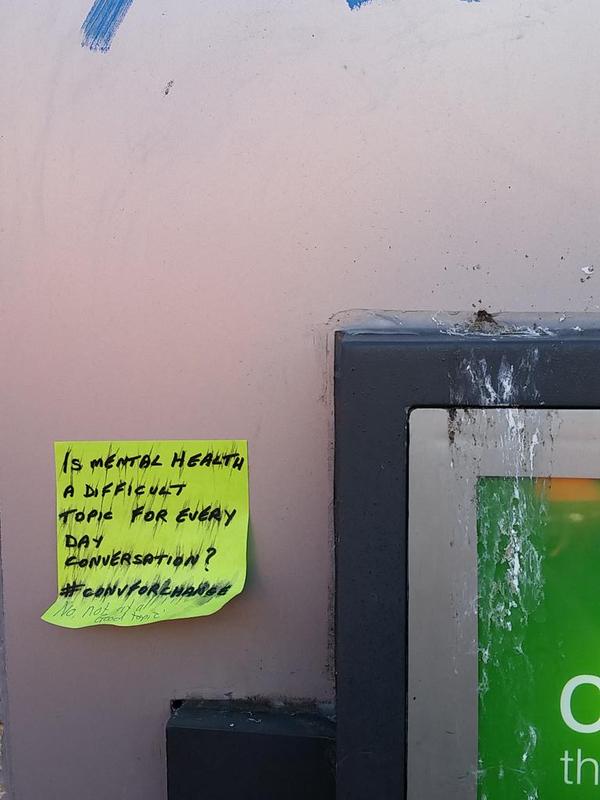 IS MENTAL HEALTH
A DIFFICULT
TOPIC FOR EVERY
DAY
CONVERSATION?
#CONVFORCHANGE
No, not
Good topic.
th